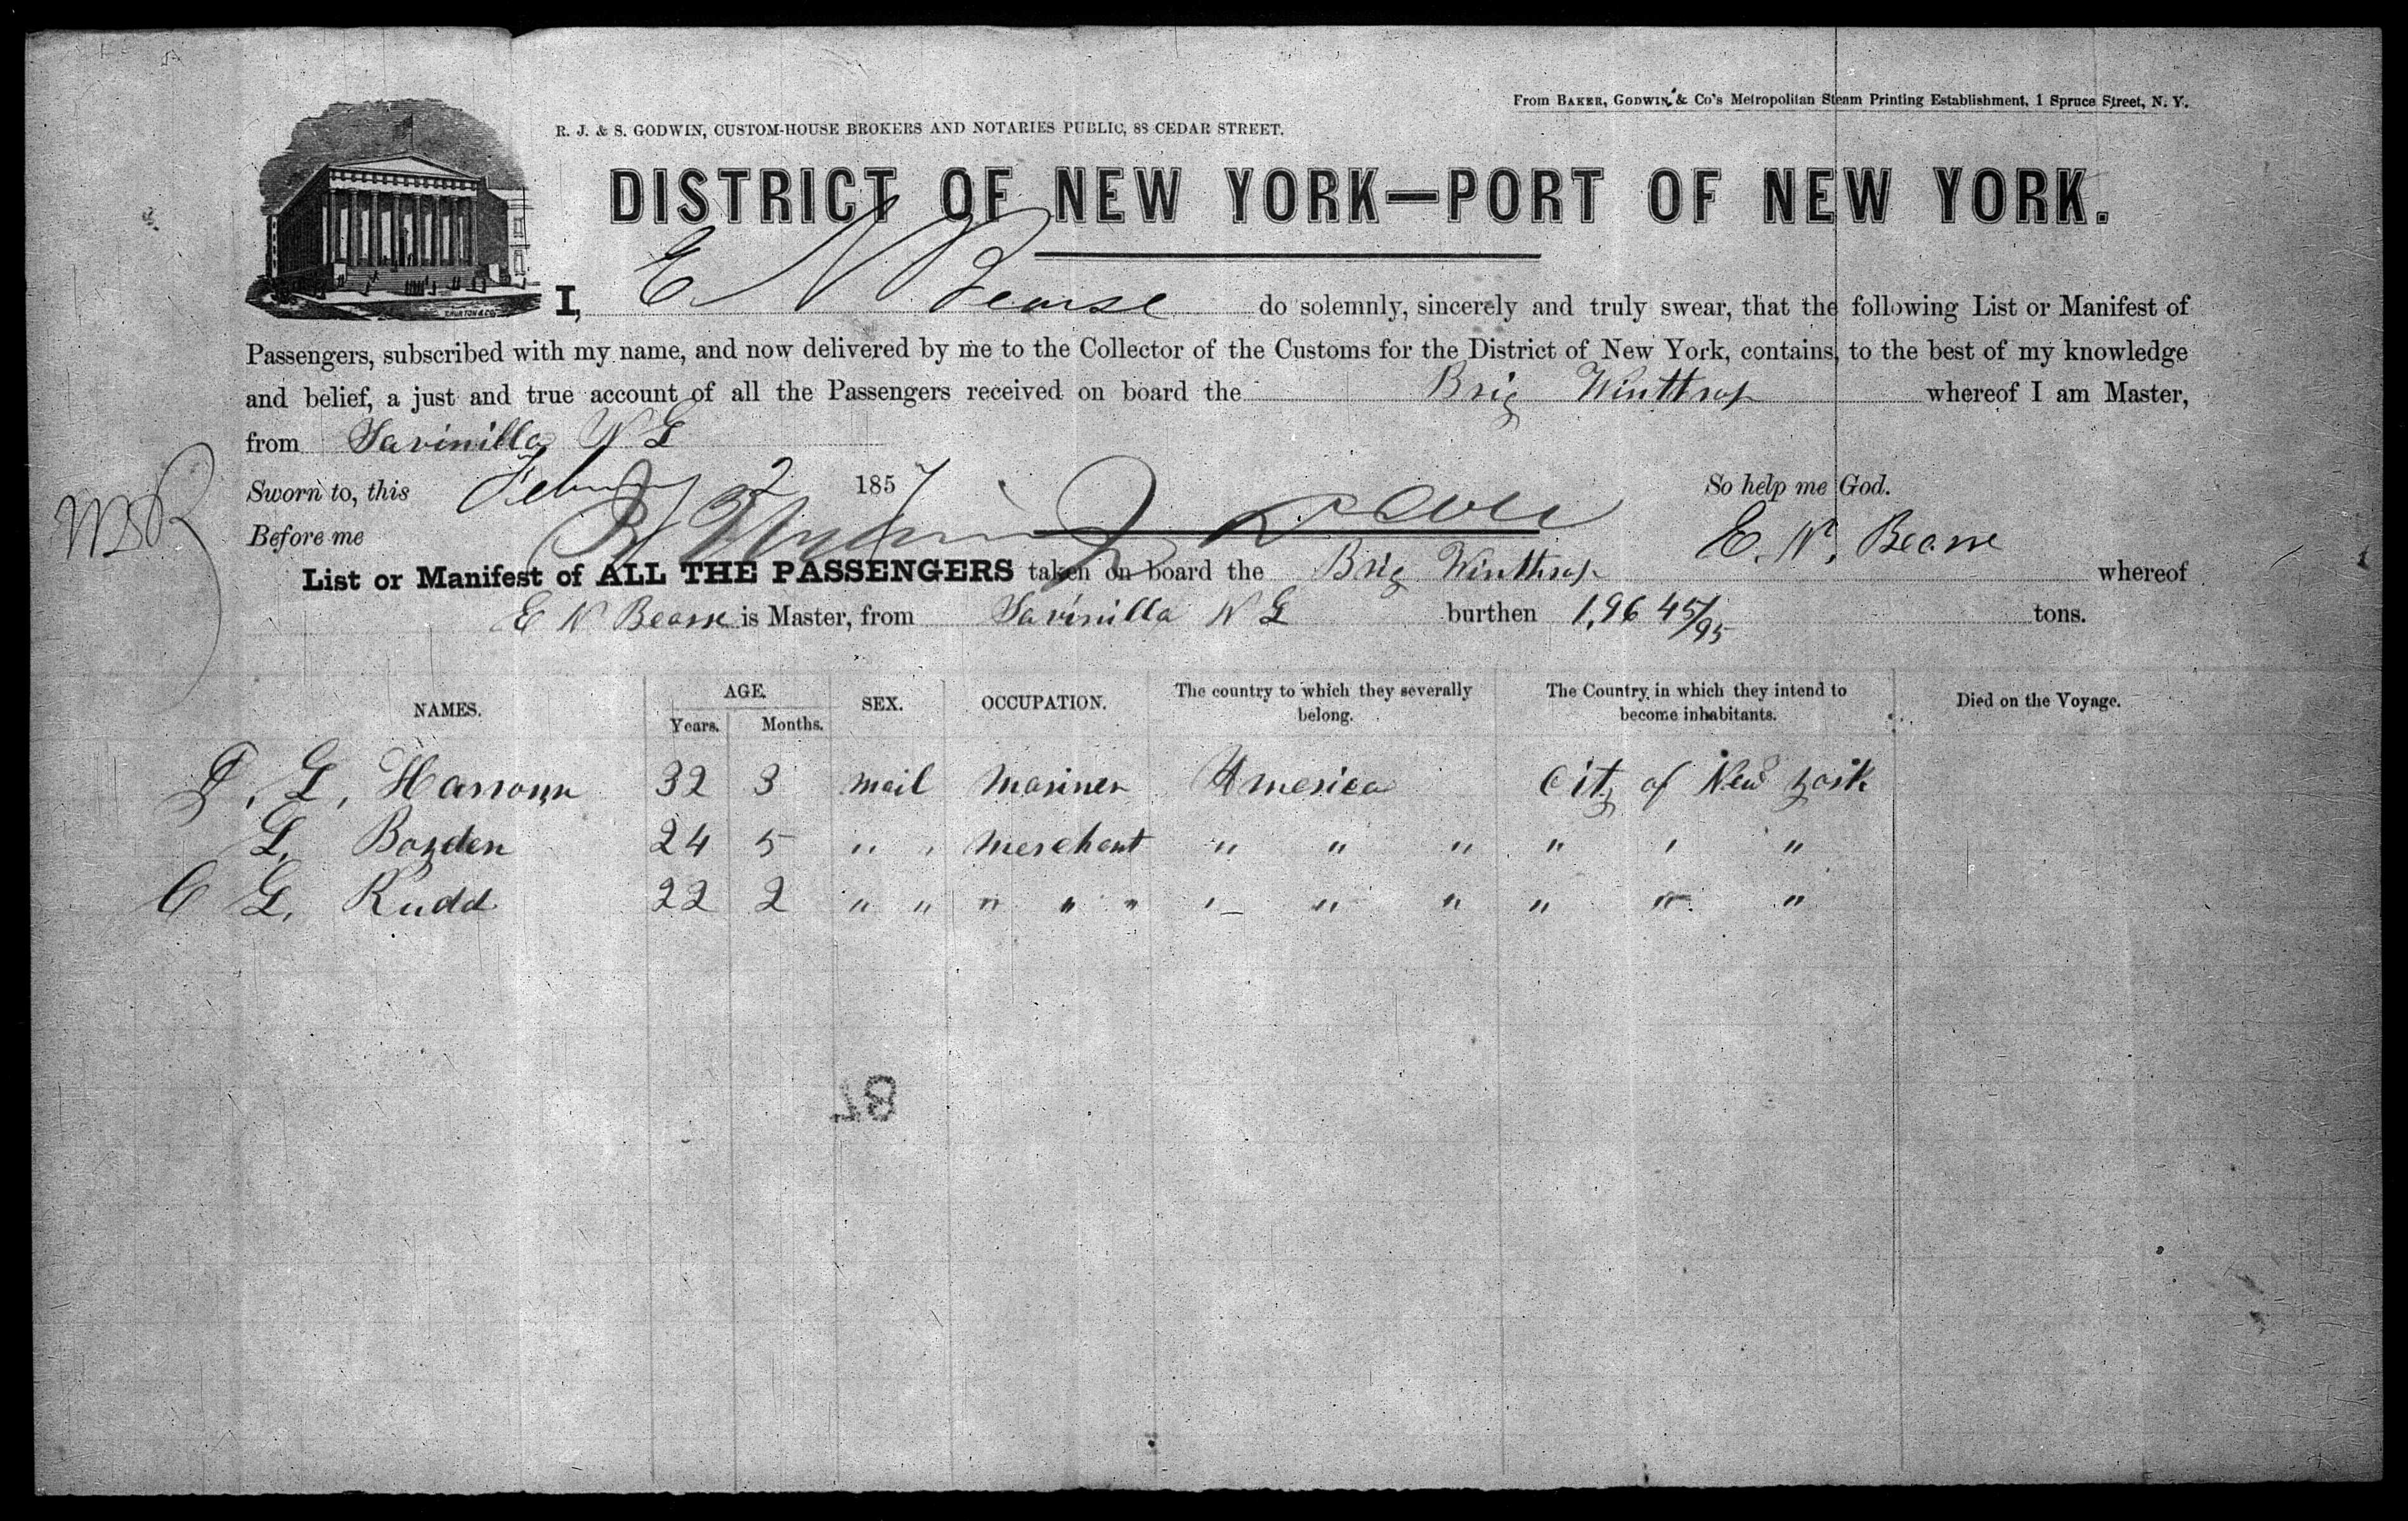 From BAKER, GODWIN & Co's Metropolitan Steam Printing Establishment, 1 Spruce Street, N. Y.
R. J. & S. GODWIN, CUSTOM-HOUSE BROKERS AND NOTARIES PUBLIC, 88 CEDAR STREET.
DISTRICT OF NEW YORK—PORT OF NEW YORK.
I, E N Bearse do solemnly, sincerely and truly swear, that the following List or Manifest of
Passengers, subscribed with my name, and now delivered by me to the Collector of the Customs for the District of New York, contains, to the best of my knowledge
and belief, a just and true account of all the Passengers received on board the Brig Winthrop whereof I am Master,
from Savinilla N G
Sworn to, this February 2 1857 So help me God.
Before me E. N. Bearse
List or Manifest of ALL THE PASSENGERS taken on board the Brig Winthrop whereof
E N Bearse is Master, from Savinilla N G burthen 1,96 45/95 tons.
NAMES. AGE. Years. Months. SEX. OCCUPATION. The country to which they severally belong. The Country in which they intend to become inhabitants. Died on the Voyage.
G. 32 3 mail Mariner America City of New york
G. Bogden 24 5 " " Merchant " " " " " "
C G. Rudd 22 2 " " " " " " " " " " "
87